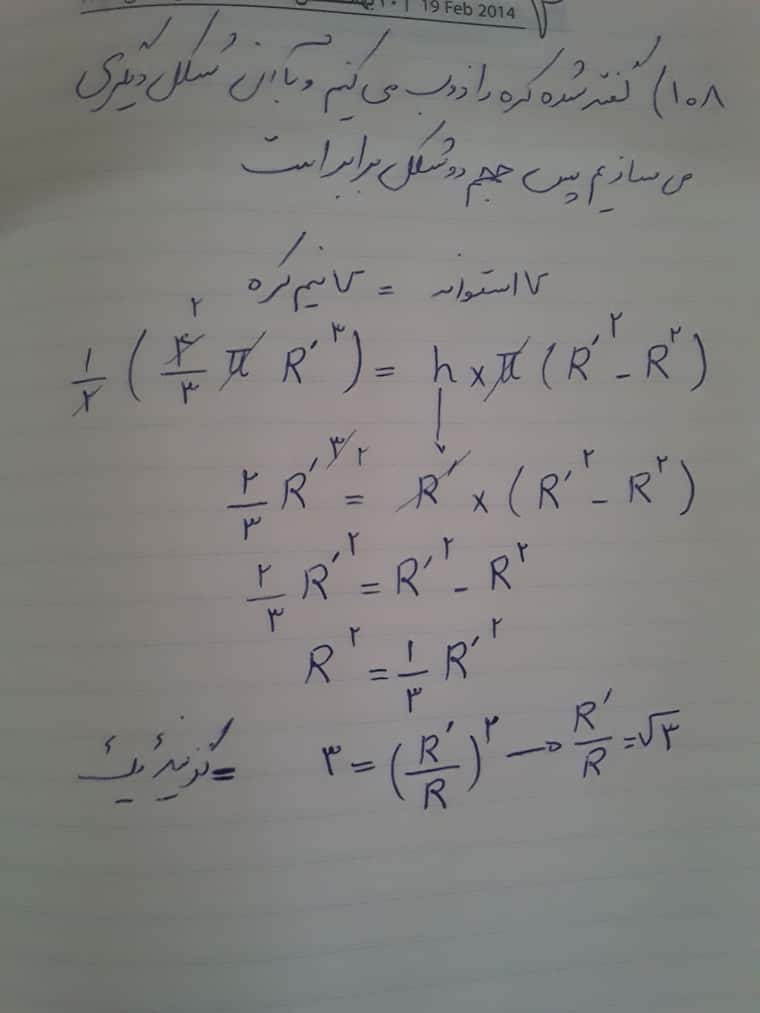 19 Feb 2014
۱۰۸) گفته شده کره را ذوب می کنیم و با آن شکل دیگری
می سازیم پس حجم دو شکل برابر است
V استوانه = V نیم کره
۱/۲ (۴/۳ π R′^۳) = h × π (R′^۲ - R^۲) ۲
۲/۳ R′^۳ ۲ = R′ × (R′^۲ - R^۲)
۲/۳ R′^۲ = R′^۲ - R^۲
R^۲ = ۱/۳ R′^۲
۳ = (R′/R)^۲ → R′/R = √۳ = گزینهٔ یک